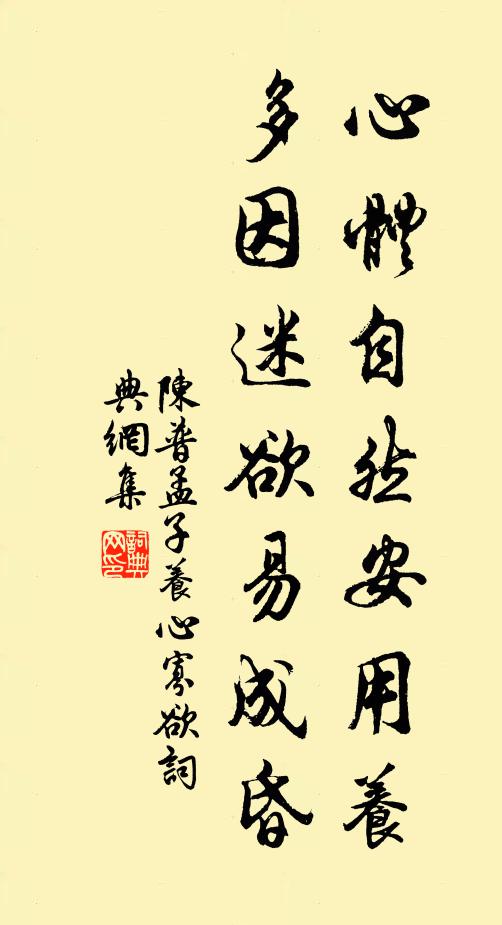 心體自然安用養
多因迷欲易成昏
陳普孟子養心寡欲詞
典網集
詞典网印